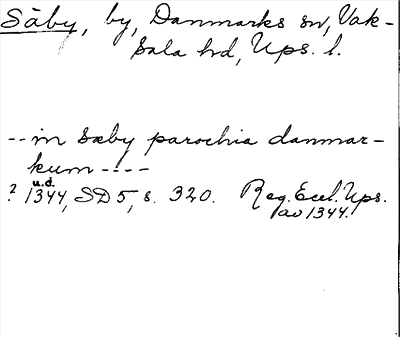 Säby, by, Danmarks sn, Vak-
sala hd, Ups. l.
-- in sæby parochia danmar-
kum ----
u.d.
? 1344, SD 5, s. 320. Reg. Eccl. Ups.
av 1344.